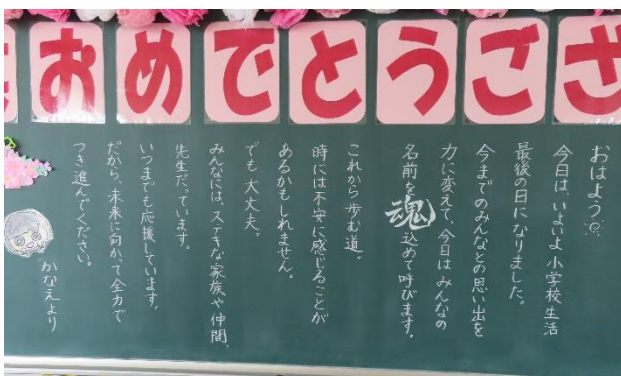 おめでとうござ
おはよう
今日は、いよいよ小学校生活
最後の日になりました。
今までのみんなとの思い出を
力に変えて、今日はみんなの
名前を魂込めて呼びます。
これから歩む道。
時には不安に感じることが
あるかもしれません。
でも大丈夫。
みんなには、ステキな家族や仲間、
先生だっています。
いつまでも応援しています。
だから、未来に向かって全力で
つき進んでください。
かなえより